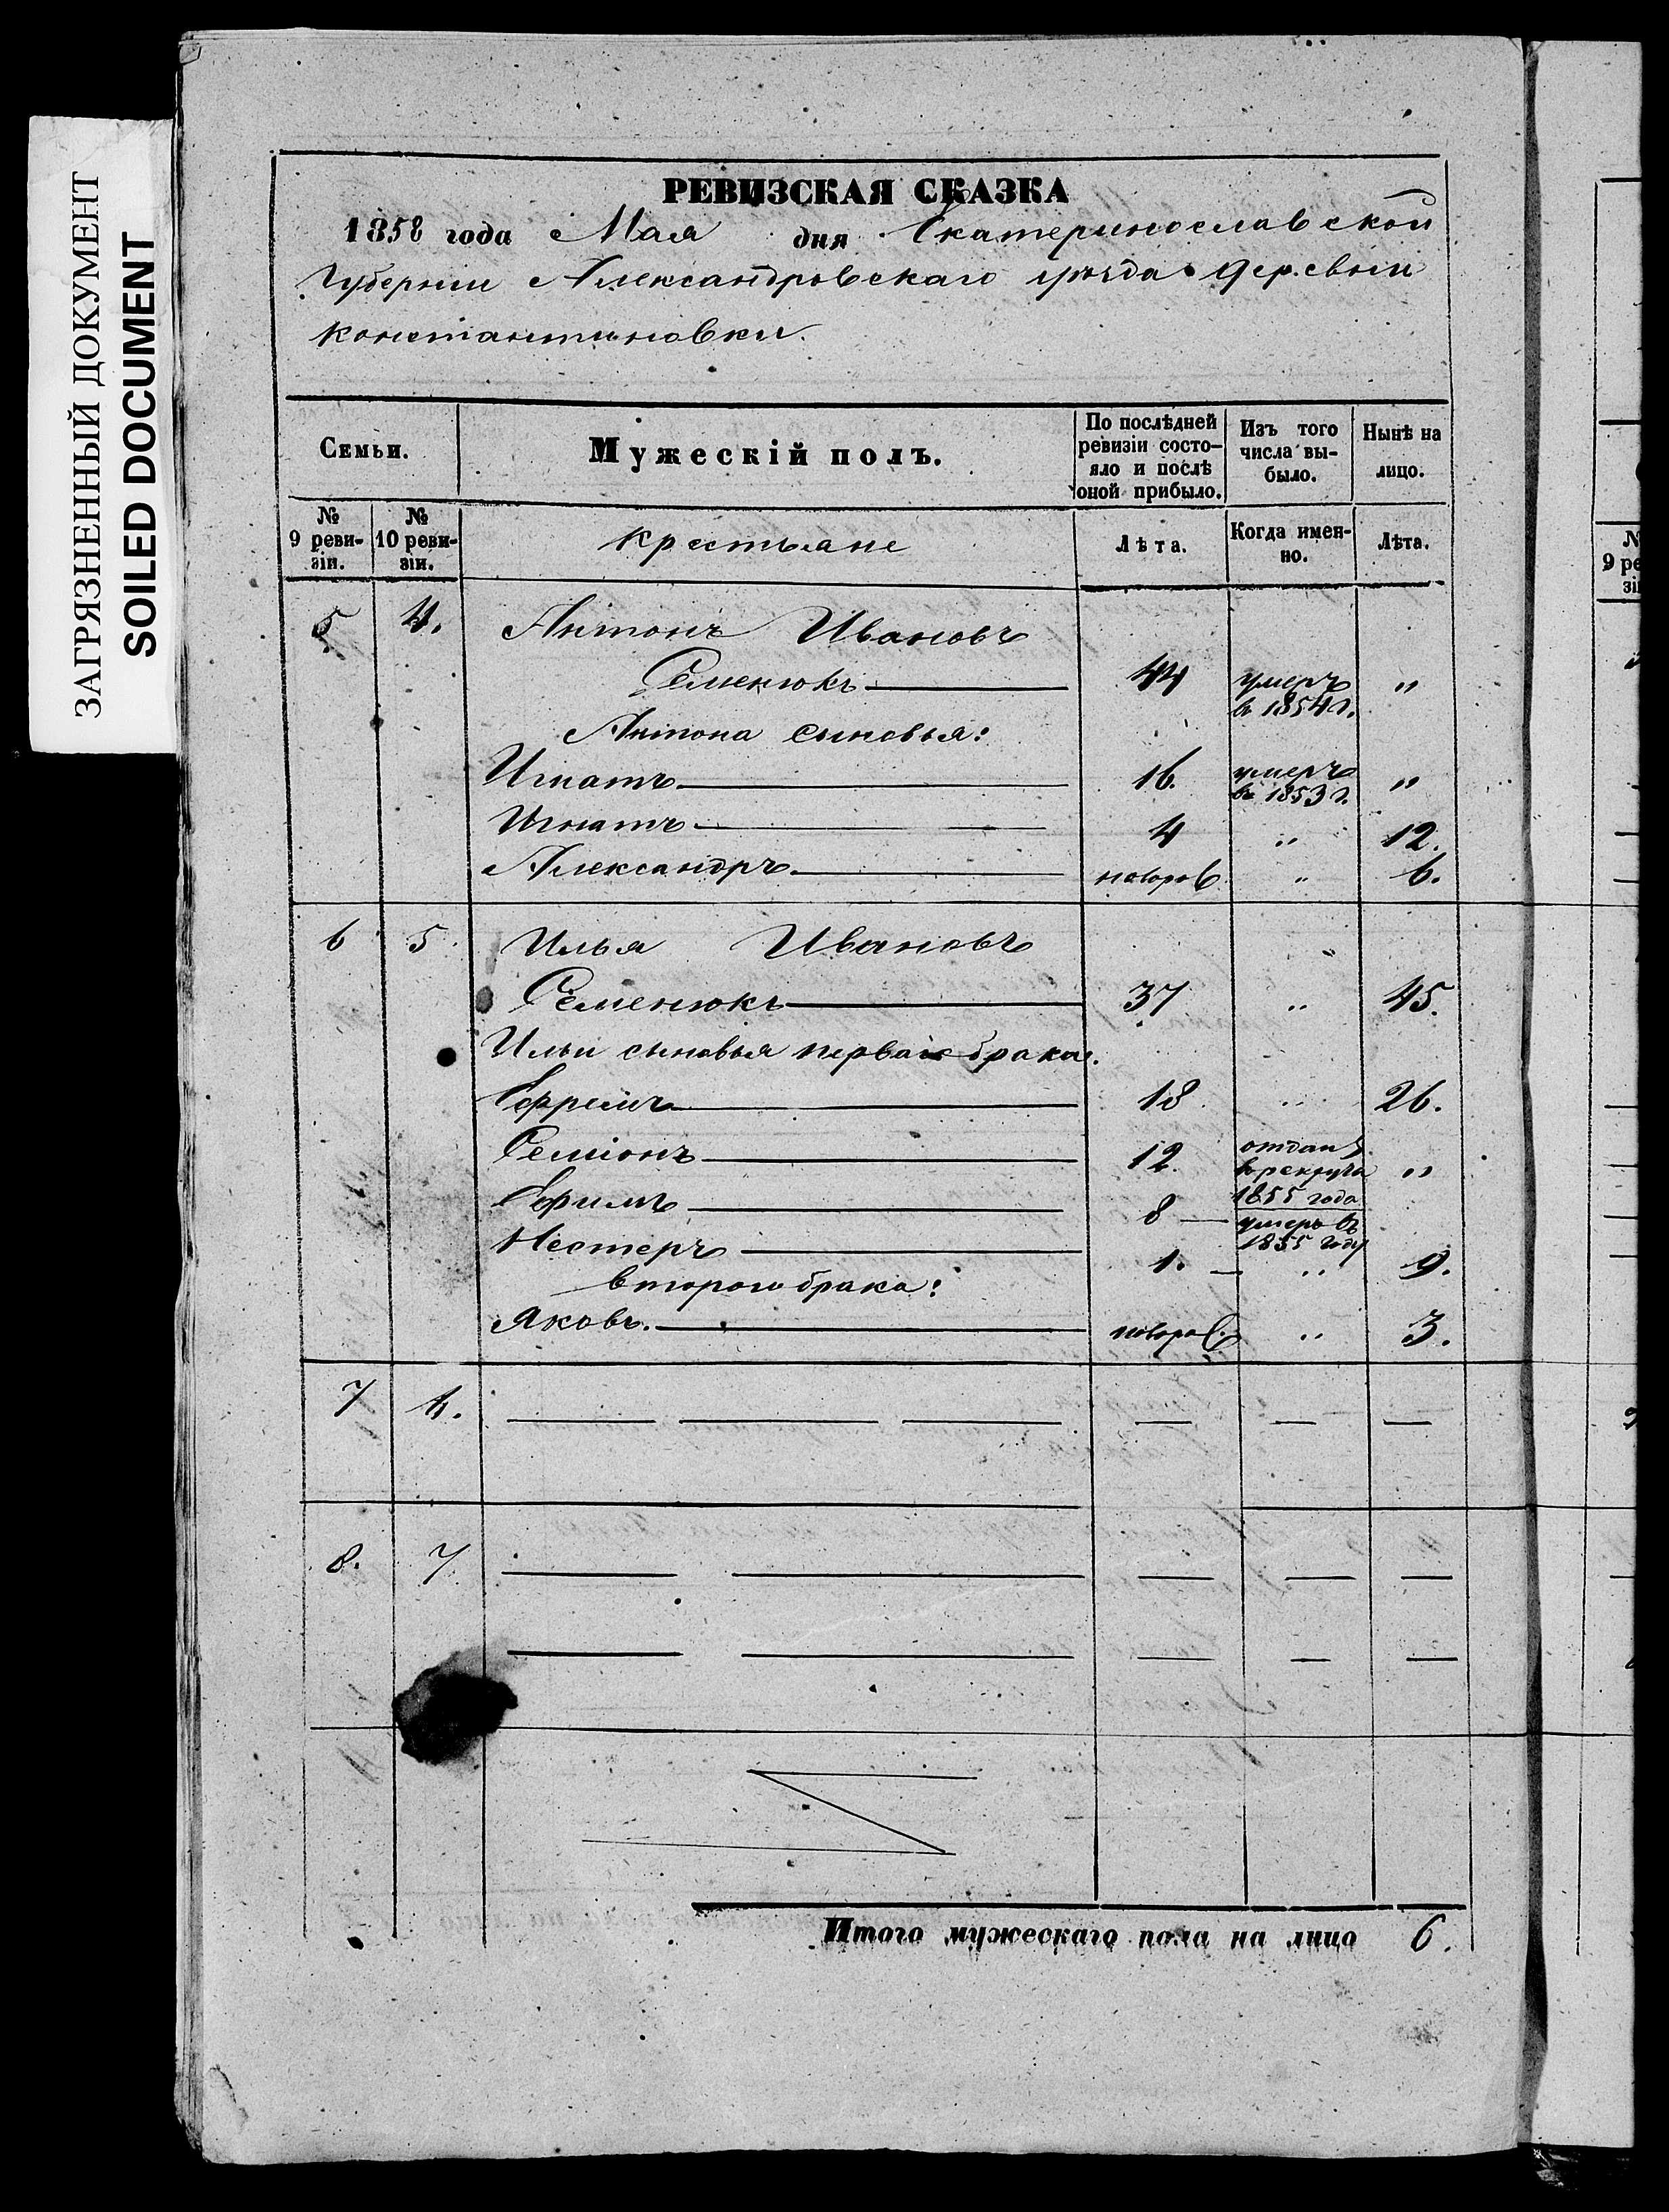 ЗАГРЯЗНЕННЫЙ ДОКУМЕНТ
SOILED DOCUMENT
РЕВИЗСКАЯ СКАЗКА
1858 года Мая дня Екатеринославской
Губернии Александровскаго уѣзда деревни
Константиновки.
Семьи. Мужескій полъ. По послѣдней ревизіи состо- яло и послѣ оной прибыло. Изъ того числа вы- было. Нынѣ на лицо.
№ 9 реви- зіи. № 10 реви- зіи. Крестьяне Лѣта. Когда имен- но. Лѣта.
5 4. Антонъ Ивановъ
Семенюкъ 44 умеръ въ 1854 г. "
Антона сыновья:
Игнатъ 16. умеръ въ 1853 г. "
Игнатъ 4 " 12.
Александръ. новоро " 6.
6 5. Илья Ивановъ
Семенюкъ 37 " 45.
Ильи сыновья перваго брака.
Ефремъ 18 " 26.
Семіонъ 12. отданъ въ рекруты 1855 года "
Ефимъ 8 — умеръ въ 1855 году
Нестеръ 1. — " 9.
втораго брака:
Яковъ. новоро " 3.
7 6. — — — — — —
8. 7 — — — — —
— — — — —
Итого мужескаго пола на лицо 6.
№
9 ре
зі